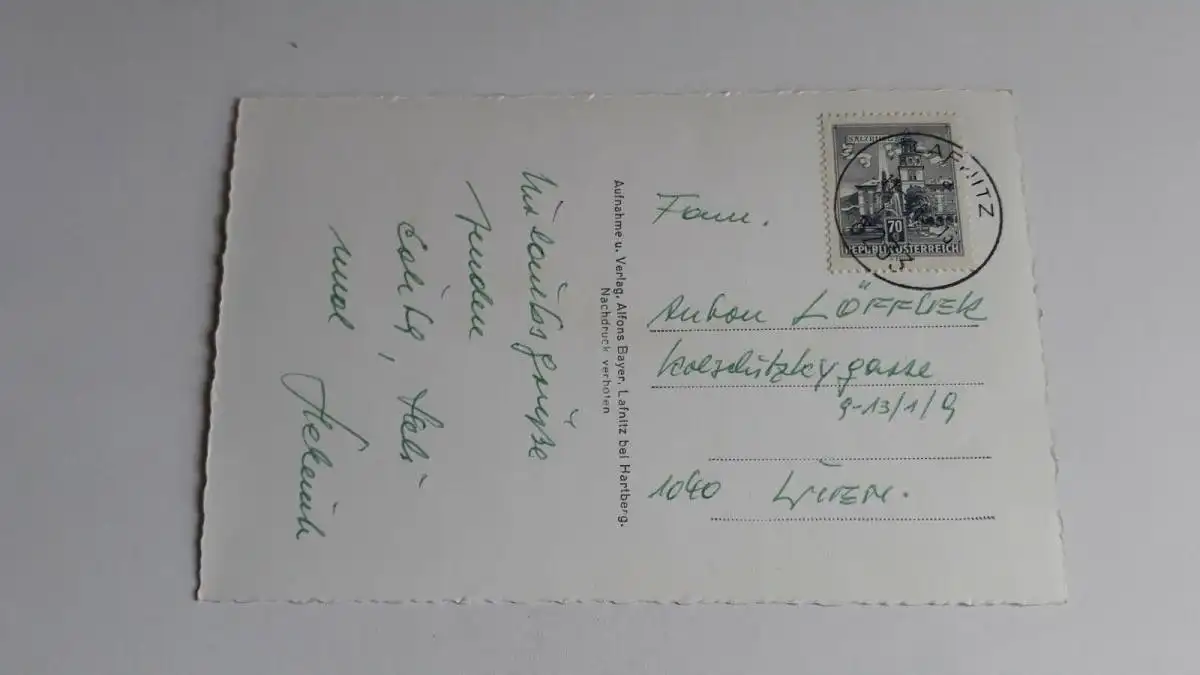 Urlaubsgrüße
senden
Edith,
und
Aufnahme u. Verlag, Alfons Bayer, Lafnitz bei Hartberg.
Nachdruck verboten
SALZBURG
70
REPUBLIK ÖSTERREICH
LAFNITZ
Fam.
Anton LÖFFLER
Kolschitzkygasse
9-13/1/9
1040 WIEN.